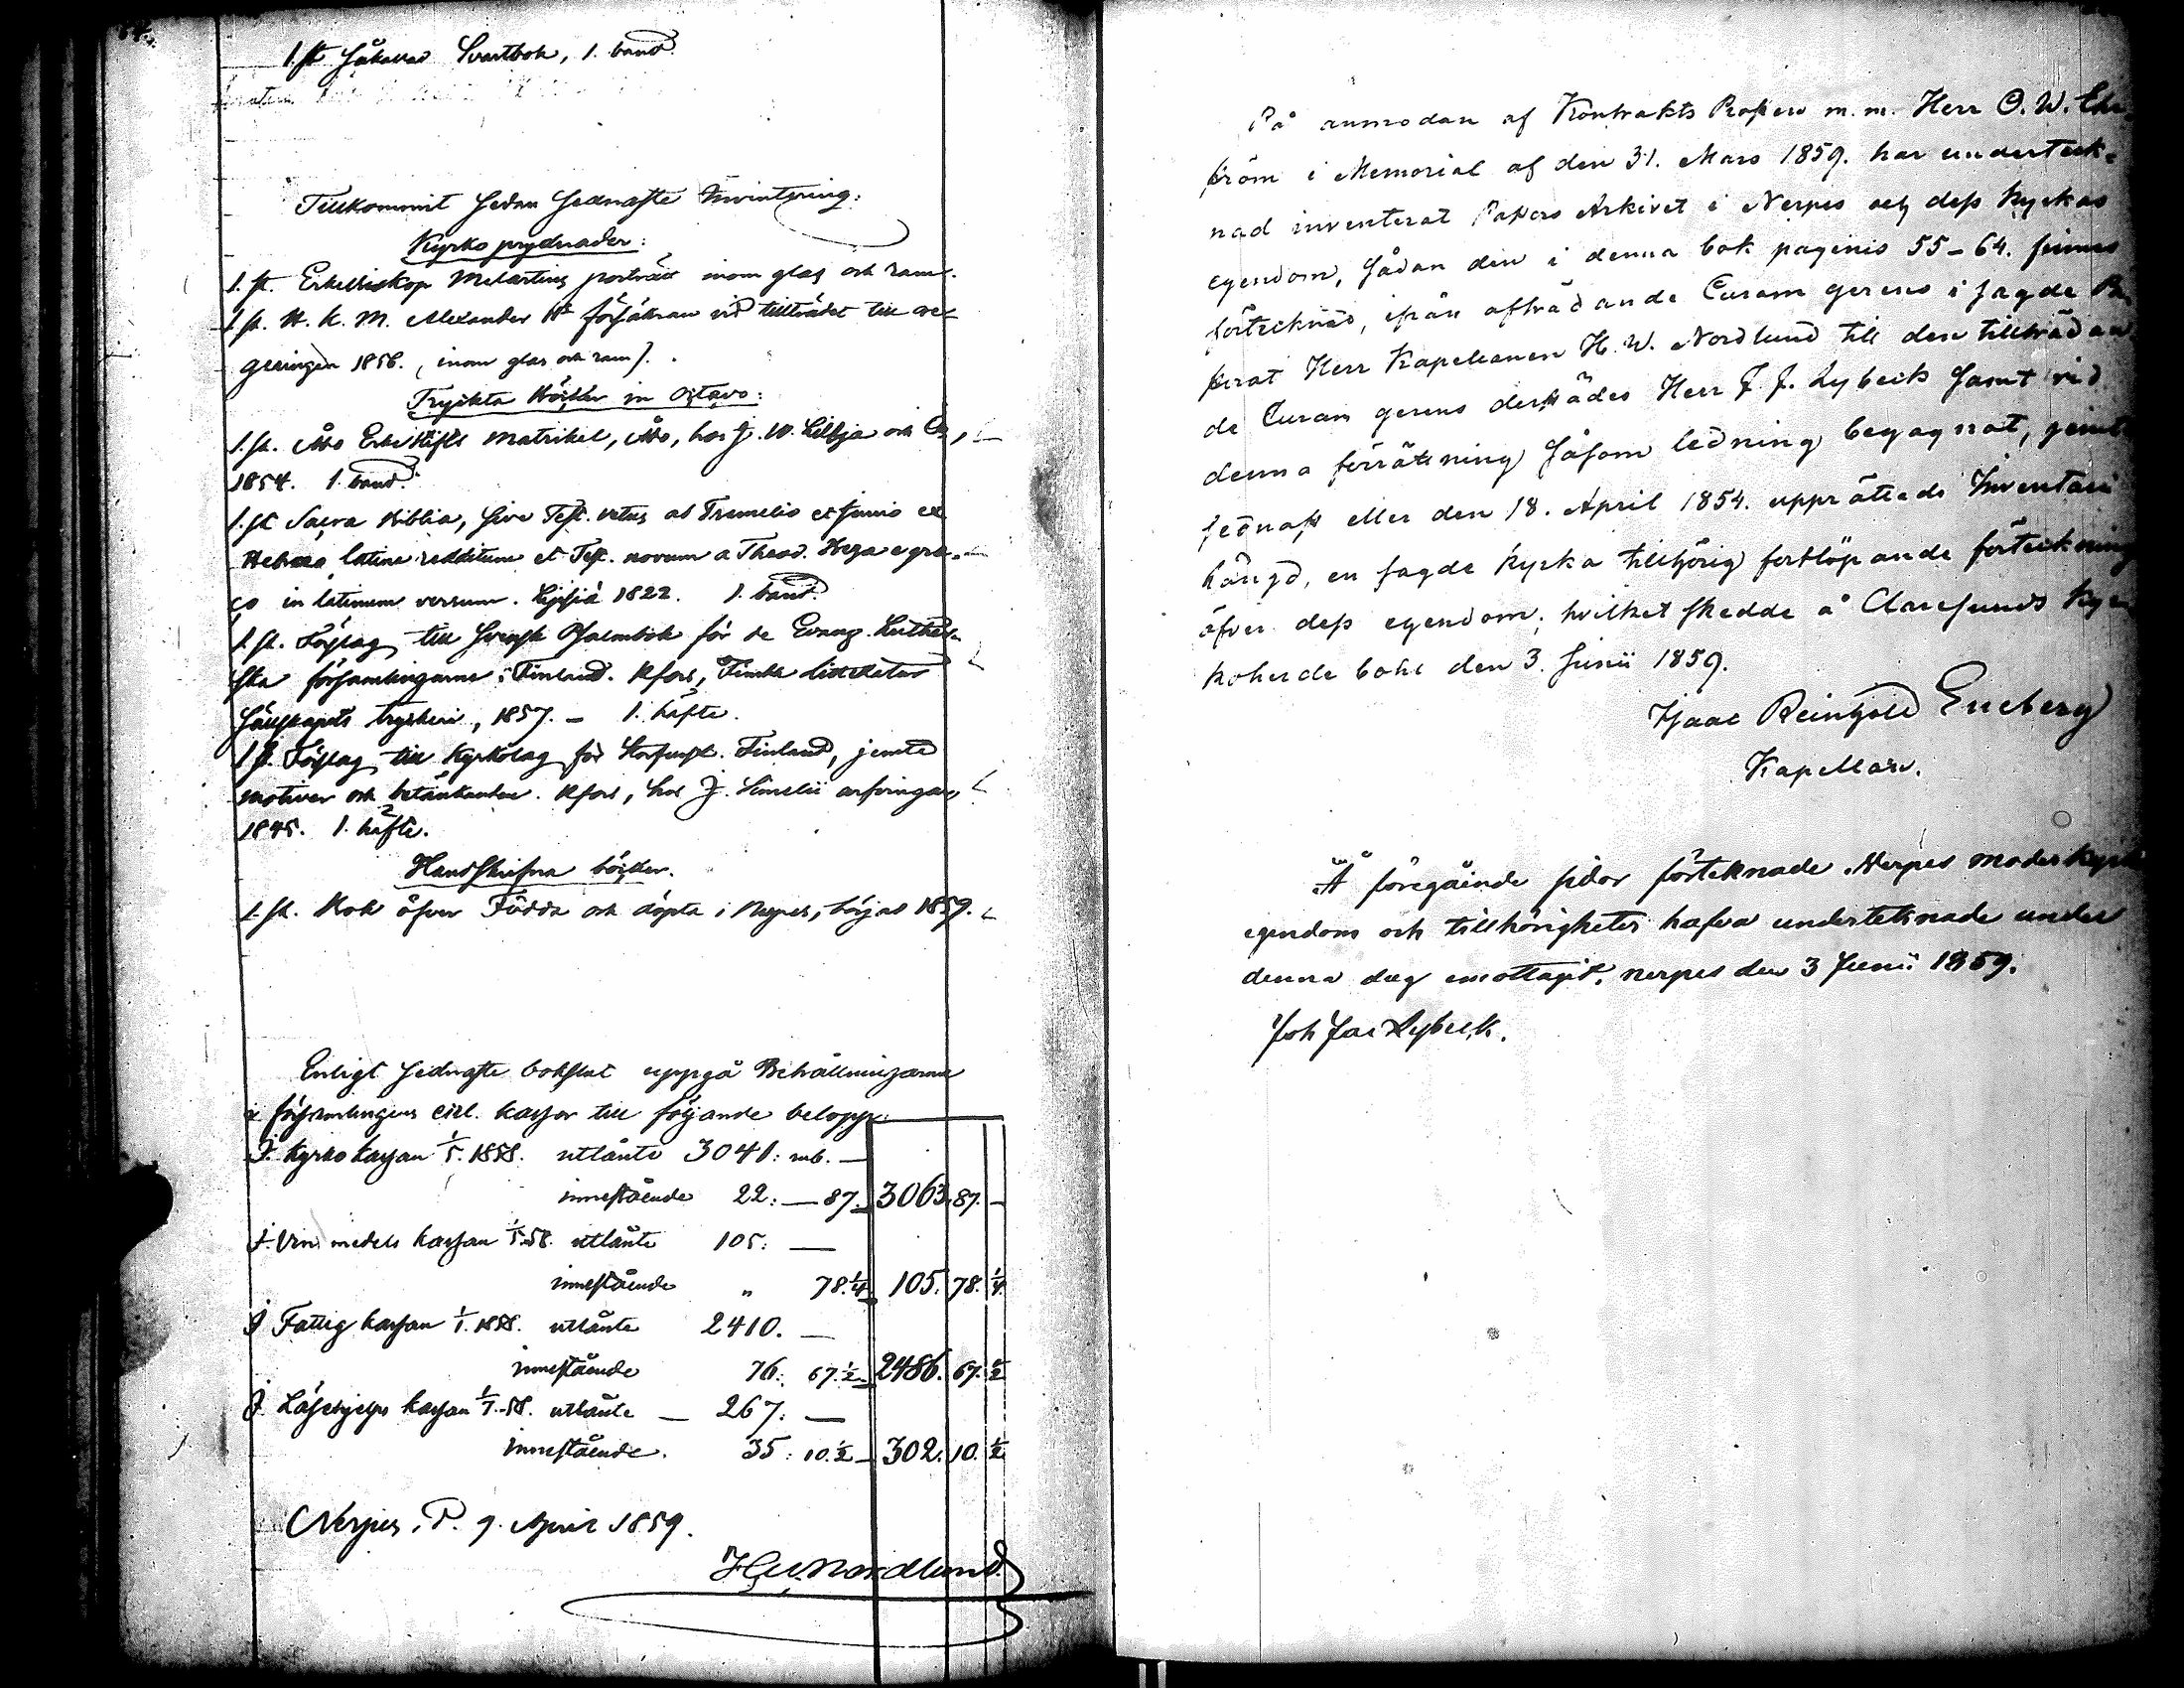 1. st Svartbok, 1. band.
Tillkommit sedan sednaste Inventering:
Kyrko prydnader:
1. st. Erkebiskop Melartins porträtt inom glas och ram.
1. st. H. K. M. Alexander IIs försäkran vid tillträdet till re-
geringen 1856. (inom glas och ram).
Tryckta Böcker in Octavo:
1. st. Åbo Erkestifts Matrikel, Åbo, hos J. W. Lillja och Co,
1854. 1. band.
1. st Sacra Biblia, sive Test. vetus ab Tremelio et Junio ex
Hebræo latine redditum et Test. novum a Theod. Beza e græ-
co in latinum versum. 1822. 1. band.
1. st. Förslag till Svensk Psalmbok för de Evang. Luther-
ska församlingarne i Finland. Hfors, Finska Litteratur
Sällskapets tryckeri, 1857. — 1. häfte.
1 st. Förslag till Kyrkolag för Storfurst. Finland, jemte
motiver och betänkanden. Hfors, hos J. Simelii arfvingar,
1845. 1. häfte.
Handskrifna böcker.
1. st. Bok öfver Födda och döpta i Nerpes, börjad 1859.
Enligt sednaste bokslut uppgå Behållningarne
i församlingens civl. kassor till följande belopp:
I Kyrko kassan 1/5. 1858. utlånte 3041: rub. —
innestående 22: — 87. 3063. 87. —
I. Vin medels kassan 1/5. 58. utlånte 105: —
innestående " 78. 1/4 105. 78. 1/4
I Fattig kassan 1/1. 1858. utlånte 2410. —
innestående 76. 67. 1/2 2486. 67. 1/2
I Läsehjelps kassan 1/1. 58. utlånte — 267: —
innestående. 35: 10. 1/2 302. 10. 1/2
Nerpes, P. 9. April 1859.
H. W. Nordlund.
På anmodan af Kontrakts Prosten m. m. Herr O. W.
ström i Memorial af den 31. Mars 1859. har underteck-
nad inventerat Pastors Arkivet i Nerpes och dess kyrkas
egendom, sådan den i denna bok paginis 55–64. finnes
förtecknad, ifrån afträdande Curam gerens i sagde Pa-
storat Herr Kapellanen H. W. Nordlund till den tillträdan-
de Curam gerens derstädes Herr J. J. Lybeck samt vid
denna förrättning såsom ledning begagnat,
sednast eller den 18. April 1854. upprättade Inventarii
längd, en sagde kyrka tillhörig fortlöpande förteckning
öfver dess egendom; hvilket skedde å Nerpes
den 3. Junii 1859.
Isaac Reinhold Eneberg
Kapellan.
Å föregående sidor förteknade Nerpes moderkyrkas
egendom och tillhörigheter hafva undertecknade under
denna dag emottagit. Nerpes den 3 Junii 1859.
Joh Jac Lybeck.